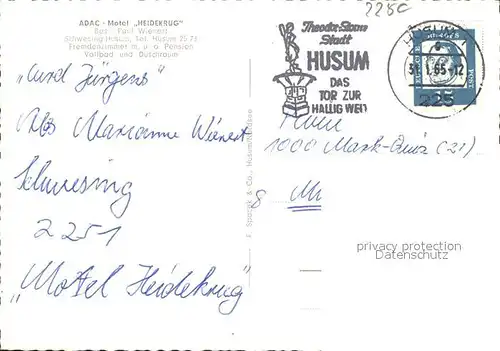 2250
ADAC - Motel „HEIDEKRUG"
Bes. Paul Wienert
Schwesing-Husum, Tel. Husum
Fremdenzimmer m. u. o. Pension
Vollbad und Duschraum
„Curd Jürgens"
Marianne Wienert
Schwesing
2251
„Motel Heidekrug"
Theodor-Storm
Stadt
HUSUM
DAS
TOR ZUR
HALLIG WELT
HUSUM
65-12
225
15
1000 Mark-Quiz (21)
8
privacy protection
Datenschutz